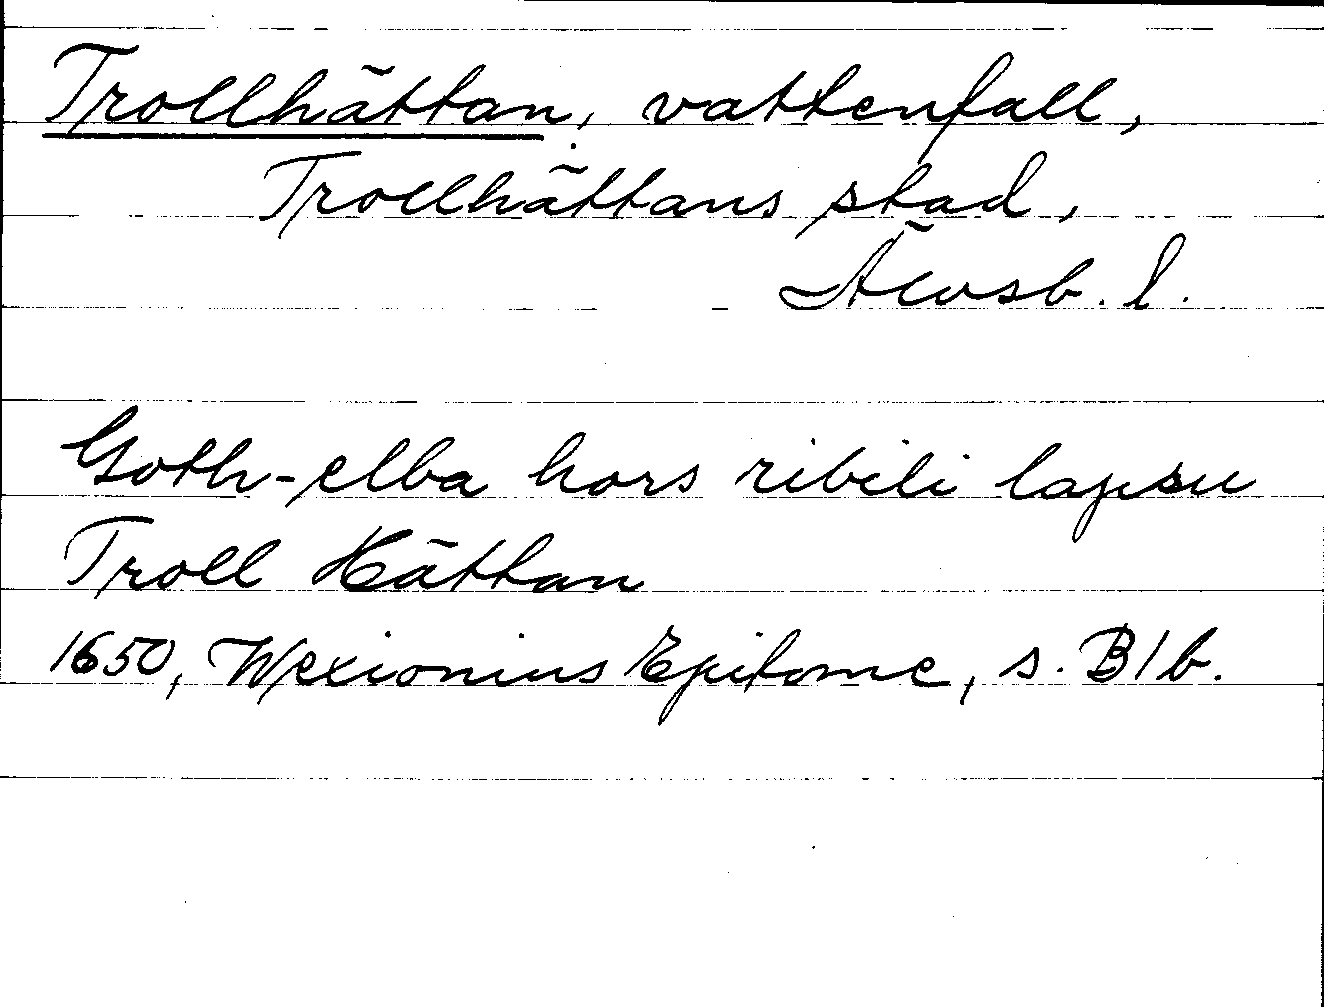 Trollhättan, vattenfall,
Trollhättans stad,
Älvsb. l.
Goth-elba hors ribili lapsu
Troll Hättan
1650, Wexionius Epitome, s. B1b.